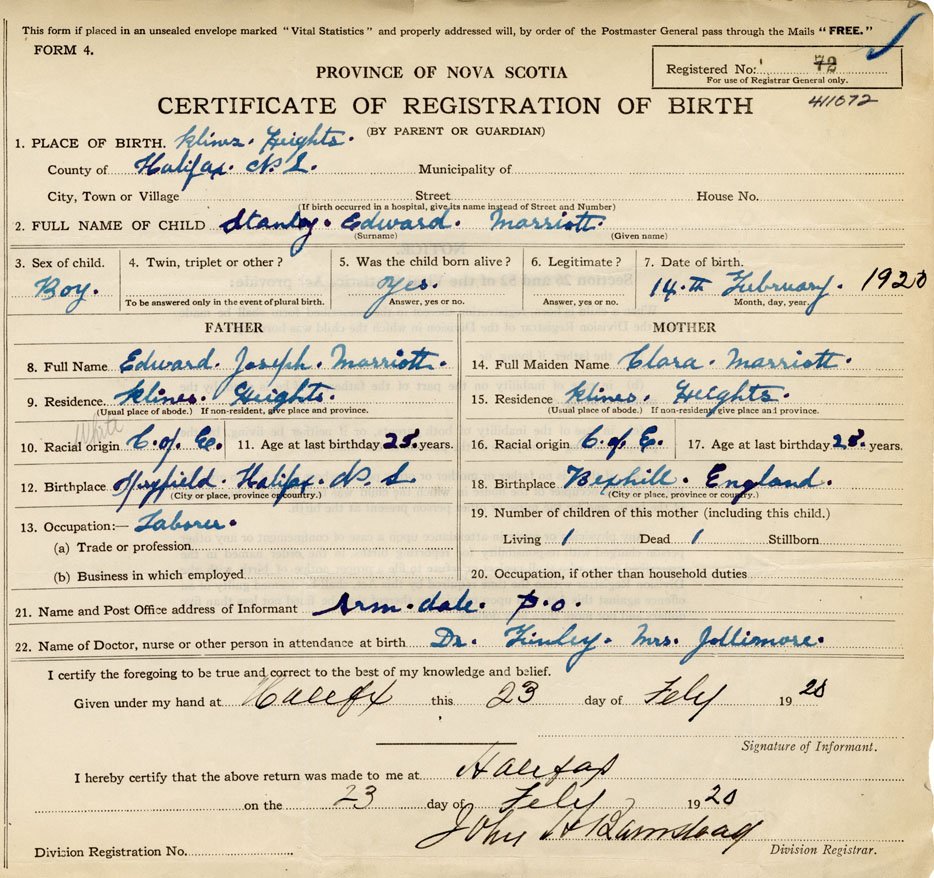 This form if placed in an unsealed envelope marked "Vital Statistics" and properly addressed will, by order of the Postmaster General pass through the Mails "FREE."
FORM 4.
PROVINCE OF NOVA SCOTIA
Registered No. 72
For use of Registrar General only.
CERTIFICATE OF REGISTRATION OF BIRTH
411072
(BY PARENT OR GUARDIAN)
1. PLACE OF BIRTH. Klines. Heights.
County of Halifax. N. S. Municipality of
City, Town or Village Street House No.
(If birth occurred in a hospital, give its name instead of Street and Number)
2. FULL NAME OF CHILD Stanley. Edward. Marriott.
(Surname) (Given name)
3. Sex of child. 4. Twin, triplet or other? 5. Was the child born alive? 6. Legitimate? 7. Date of birth.
Boy. Yes. 14.th February. 1920
To be answered only in the event of plural birth. Answer, yes or no. Answer, yes or no. Month, day, year.
FATHER MOTHER
8. Full Name Edward. Joseph. Marriott. 14. Full Maiden Name Clara. Marriott.
9. Residence. Klines. Heights. 15. Residence Klines. Heights.
(Usual place of abode.) If non-resident, give place and province. (Usual place of abode.) If non-resident, give place and province.
White
10. Racial origin C. of E. 11. Age at last birthday 25. years. 16. Racial origin C. of E. 17. Age at last birthday 28. years.
12. Birthplace Halifax. N. S 18. Birthplace Bexhill. England.
(City or place, province or country.) (City or place, province or country.)
13. Occupation:— Laborer. 19. Number of children of this mother (including this child.)
(a) Trade or profession Living 1 Dead 1 Stillborn
(b) Business in which employed 20. Occupation, if other than household duties
21. Name and Post Office address of Informant Arm. dale. P.O.
22. Name of Doctor, nurse or other person in attendance at birth Dr. Finley. Mrs. Jollimore.
I certify the foregoing to be true and correct to the best of my knowledge and belief.
Given under my hand at Halifax this 23 day of Feby 1920
Signature of Informant.
I hereby certify that the above return was made to me at Halifax
on the 23 day of Feby 1920
John H Barnstead
Division Registration No. Division Registrar.